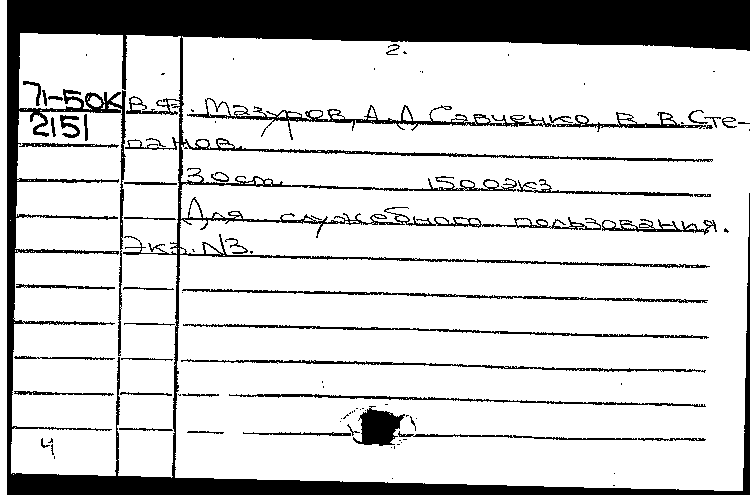 2.
71-50К В.Ф. Мазуров, А.Д. Савченко, В. В. Сте-
2151
панов.
30 ст. 1500экз
Для служебного пользования.
Экз. N3.
4